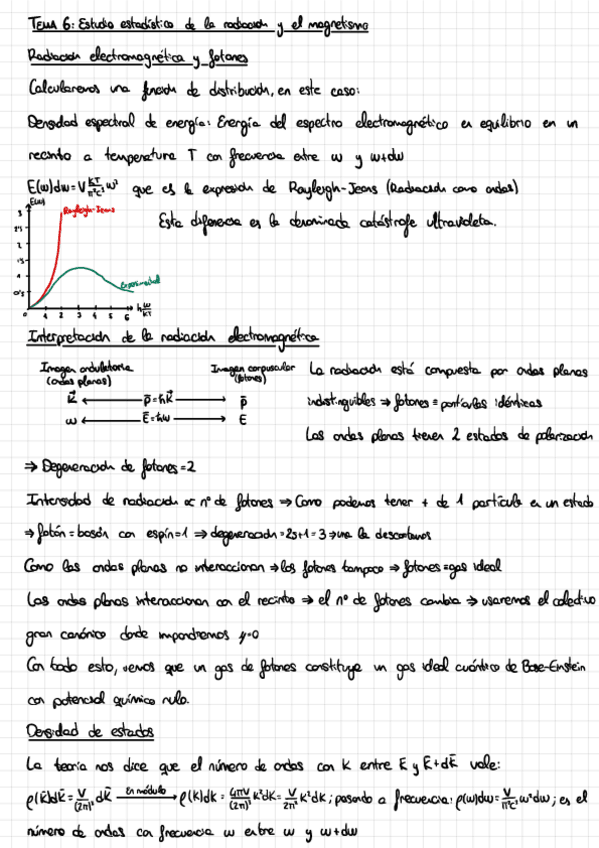 TEMA 6: Estudio estadístico de la radiación y el magnetismo
Radiación electromagnética y fotones
Calcularemos una función de distribución, en este caso:
Densidad espectral de energía: Energía del espectro electromagnético en equilibrio en un
recinto a temperatura T con frecuencia entre ω y ω+dω
E(ω)dω=V kT/π²c³ ω² que es la expresión de Rayleigh-Jeans (Radiación como ondas)
E(ω)
Rayleigh-Jeans
Esta diferencia es la denominada catástrofe ultravioleta.
3
2'5
2
1'5
1
0'5
Experimental
0 1 2 3 4 5 6 ħω/kT
Interpretación de la radiación electromagnética
Imagen ondulatoria (ondas planas)
Imagen corpuscular (fotones)
La radiación está compuesta por ondas planas
K⃗ ← p̄=ħK⃗ → p̄
indistinguibles ⇒ fotones ≡ partículas idénticas
ω ← Ē=ħω → E
Las ondas planas tienen 2 estados de polarización
⇒ Degeneración de fotones=2
Intensidad de radiación ∝ nº de fotones ⇒ Como podemos tener + de 1 partícula en un estado
⇒ fotón = bosón con espín=1 ⇒ degeneración=2s+1=3 ⇒ una la descartamos
Como las ondas planas no interaccionan ⇒ los fotones tampoco ⇒ fotones=gas ideal
Las ondas planas interaccionan con el recinto ⇒ el nº de fotones cambia ⇒ usaremos el colectivo
gran canónico donde impondremos μ=0
Con todo esto, vemos que un gas de fotones constituye un gas ideal cuántico de Bose-Einstein
con potencial químico nulo.
Densidad de estados
La teoría nos dice que el número de ondas con K entre K̄ y K̄+dK̄ vale:
ρ(K̄)dK̄=V/(2π)³ dK̄ En módulo → ρ(K)dK=4πV/(2π)³ K²dK=V/2π² K²dK; pasando a frecuencia: ρ(ω)dω=V/π²c³ ω²dω; es el
número de ondas con frecuencia ω entre ω y ω+dω